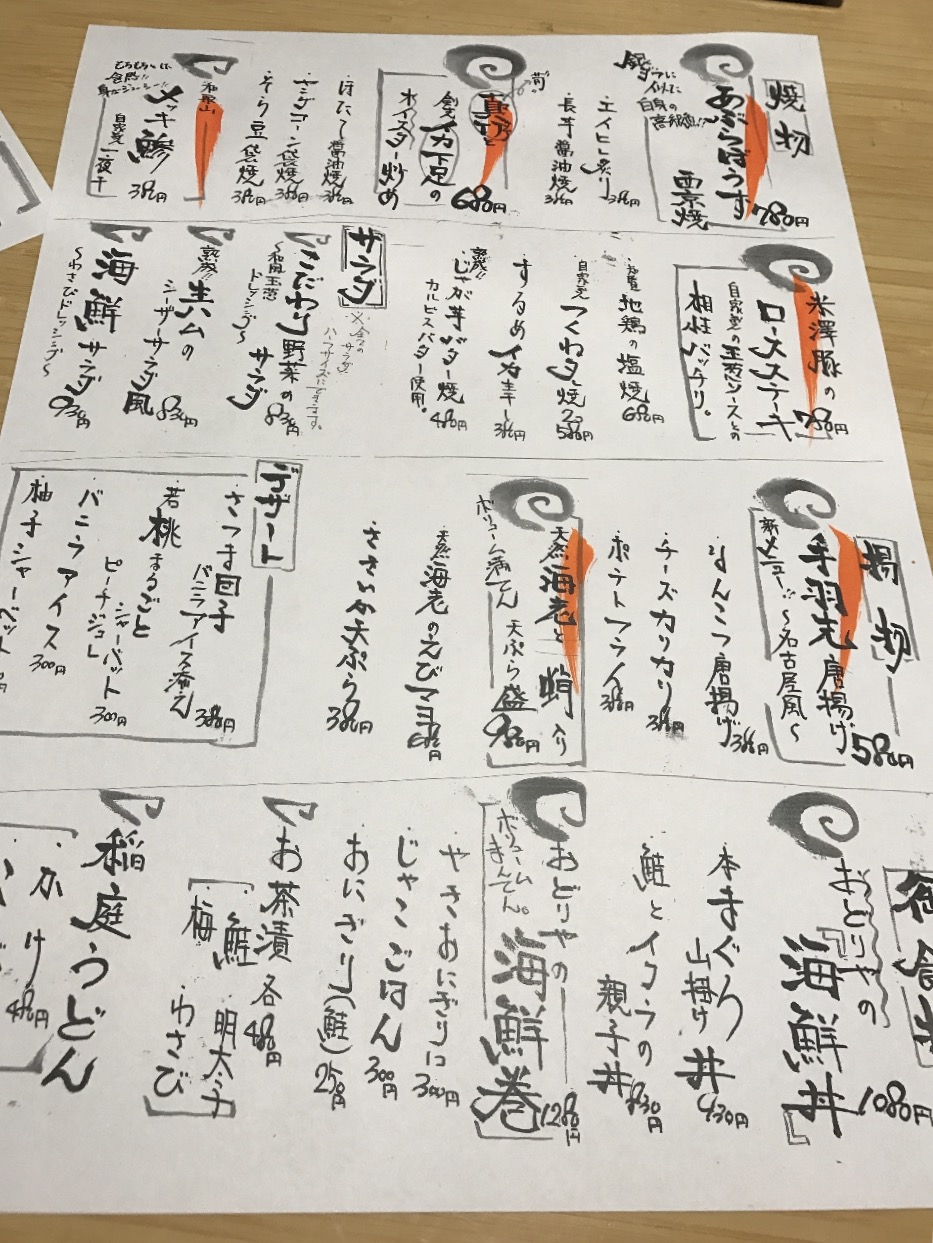 焼物
銀ダラに
似た
白身の
高級魚!!
あぶらぼうず
西京焼 780円
エイヒレ炙り 380円
長芋醤油焼 380円
真ダコと
イカ下足の
オイスター炒め 680円
ほたて醤油焼 380円
ヤングコーン袋焼 380円
そら豆袋焼 380円
和歌山
メッキ鯵
自家製一夜干 380円
米澤豚の
ロースステーキ 780円
自家製の玉葱ソースとの
相性バッチリ。
地鶏の塩焼 680円
自家製
つくね焼 2コ 580円
するめイカ キー 380円
熟成!!
じゃが芋バター焼 480円
カルピスバター使用。
サラダ
こだわり野菜の
サラダ 830円
〜和風玉葱
ドレッシング〜
熟成!
生ハムの
シーザーサラダ風 830円
海鮮サラダ 930円
〜わさびドレッシング〜
揚物
手羽先唐揚げ 580円
新メニュー!! 〜名古屋風〜
なんこつ唐揚げ 380円
チーズカリカリ 380円
ポテトフライ 380円
天然海老と 蛸入り
ボリューム満てん 天ぷら盛 980円
天然海老のえびマヨ 680円
ささみ天ぷら 380円
デザート
さつま団子
バニラアイス添え 380円
若桃まるごと
ピーチジュレ
シャーベット 300円
バニラアイス 300円
柚子シャーベット
おどりやの
『海鮮丼』 1080円
本まぐろ
山掛け丼 930円
鮭とイクラの
親子丼 830円
おどりやの
海鮮巻 1280円
ボリューム
まんてん。
やきおにぎり 300円
じゃこごはん 300円
おにぎり(鮭) 250円
お茶漬 各480円
鮭 明太子
梅 わさび
稲庭うどん
かけ 480円